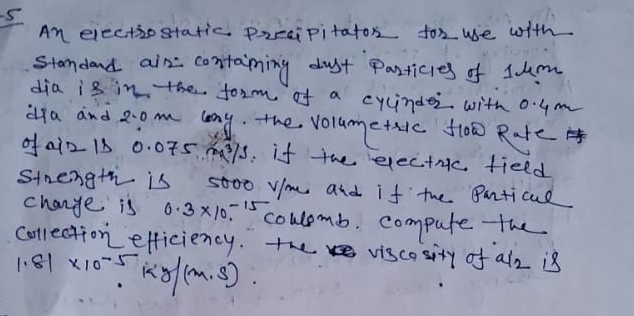 -5
An electrostatic Precipitator for use with
Standard air containing dust Particles of 1 μm
dia is in the form of a cylinder with 0.4 m
dia and 2.0 m long. the volumetric flow Rate
of air is 0.075 m³/s. if the electric field
Strength is 5000 V/m and if the Particul
charge is 0.3 x 10⁻¹⁵ coulomb. compute the
Collection efficiency. the viscosity of air is
1.81 x 10⁻⁵ kg/(m.s).